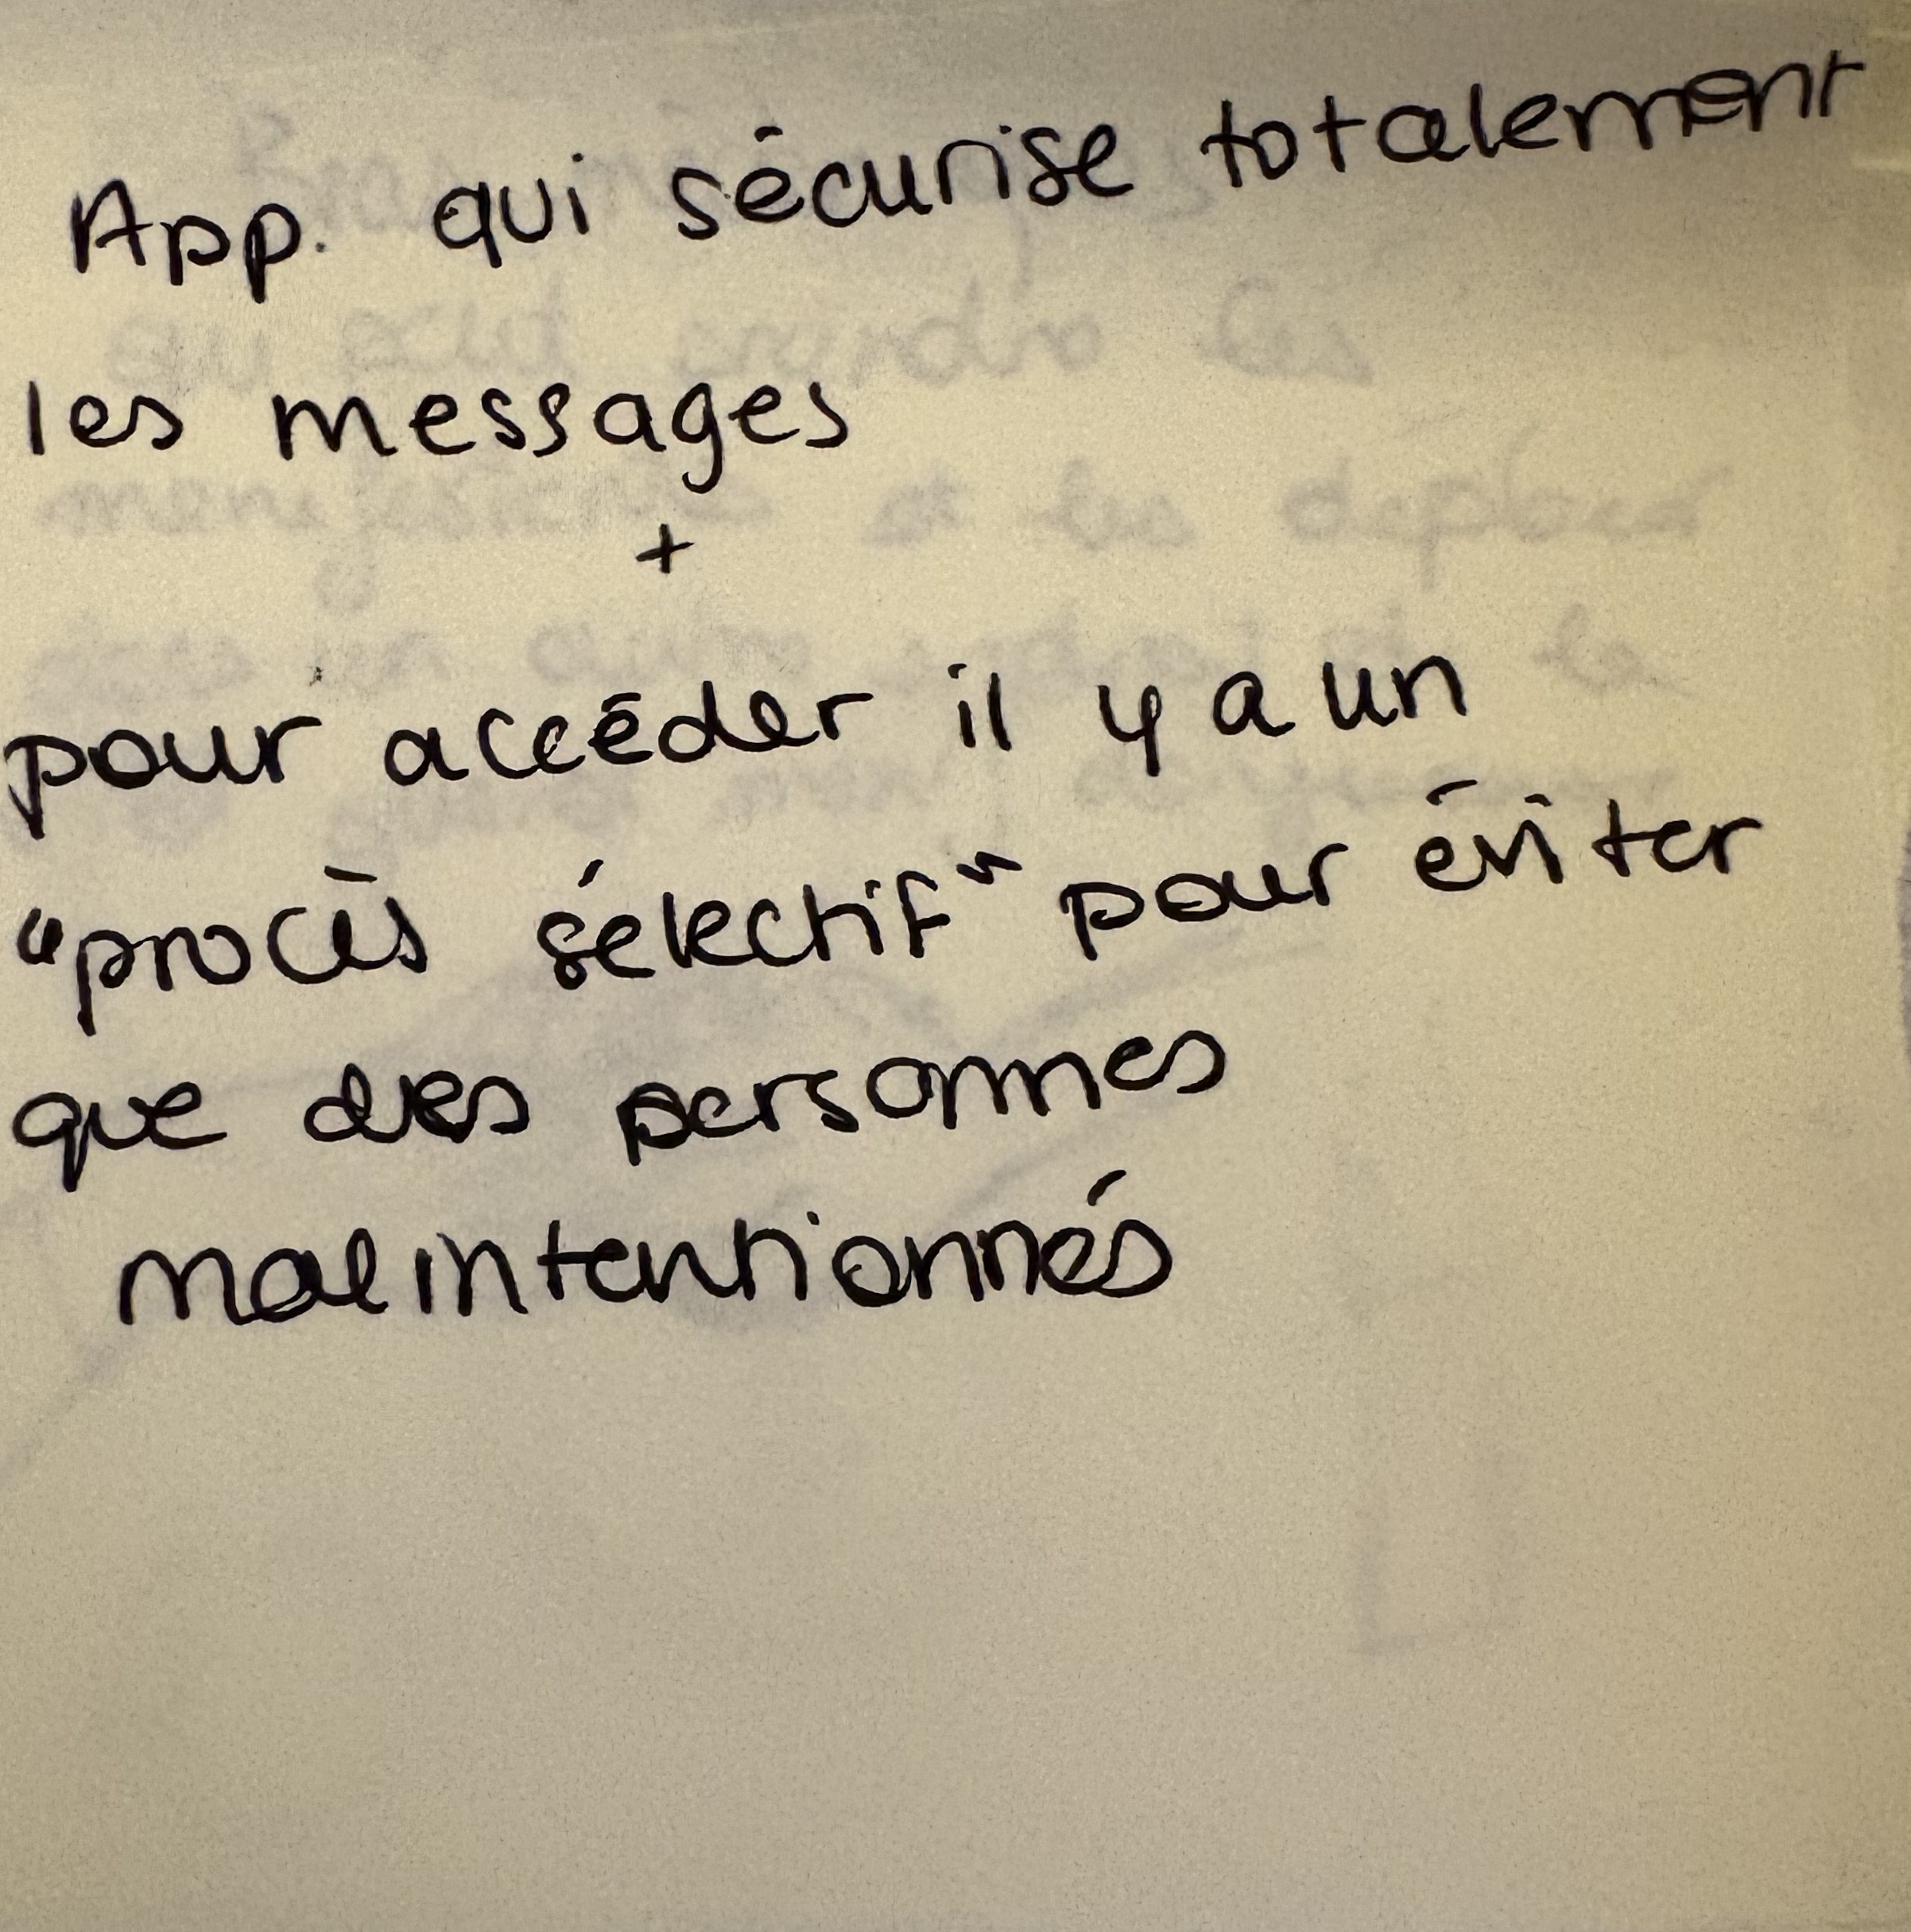 App. qui sécurise totalement
les messages
+
pour accéder il y a un
"procès sélectif" pour éviter
que des personnes
malintentionnés